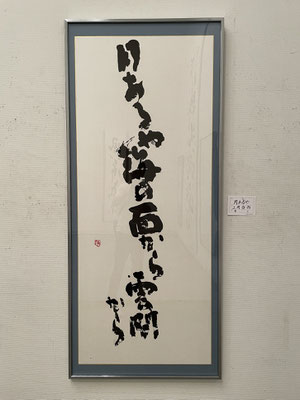 月あるや海の面から雲間から
月あるや